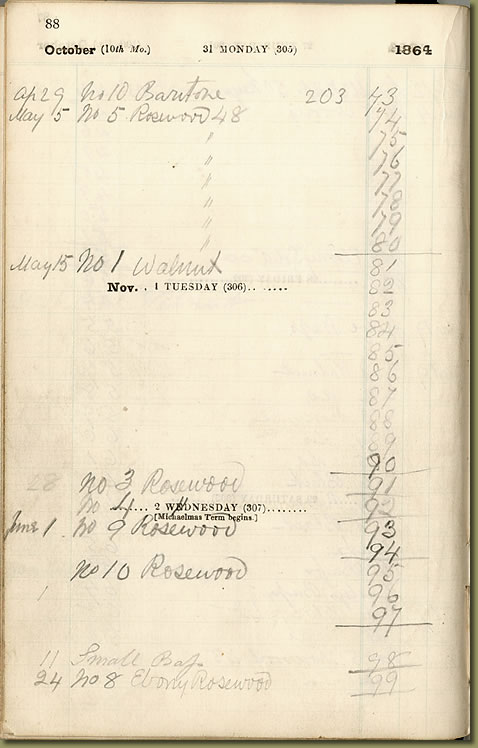 88
October (10th Mo.) 31 MONDAY (305) 1864
Ap 29 No 10 Baritone 203 73
May 5 No 5 Rosewood 48 74
75
" 76
" 77
" 78
" 79
" 80
May 15 No 1 Walnut 81
Nov. . 1 TUESDAY (306)........ 82
83
84
85
86
87
88
89
90
28 No 3 Rosewood 91
No 4 " 92
...... 2 WEDNESDAY (307)........
[Michaelmas Term begins.]
June 1 No 9 Rosewood 93
94
No 10 Rosewood 95
96
97
11 Small Bas. 98
24 No 8 Ebony Rosewood 99